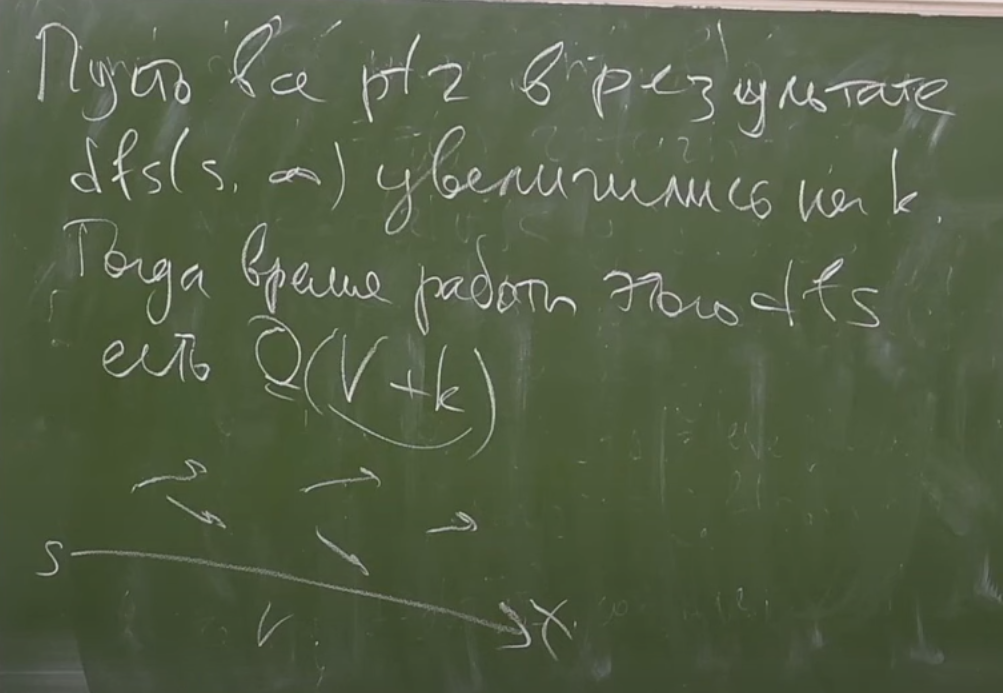 Пусть все ptr в результате
dfs(s, ∞) увеличились на k.
Тогда время работы этого dfs
есть O(V+k)
s
V
x